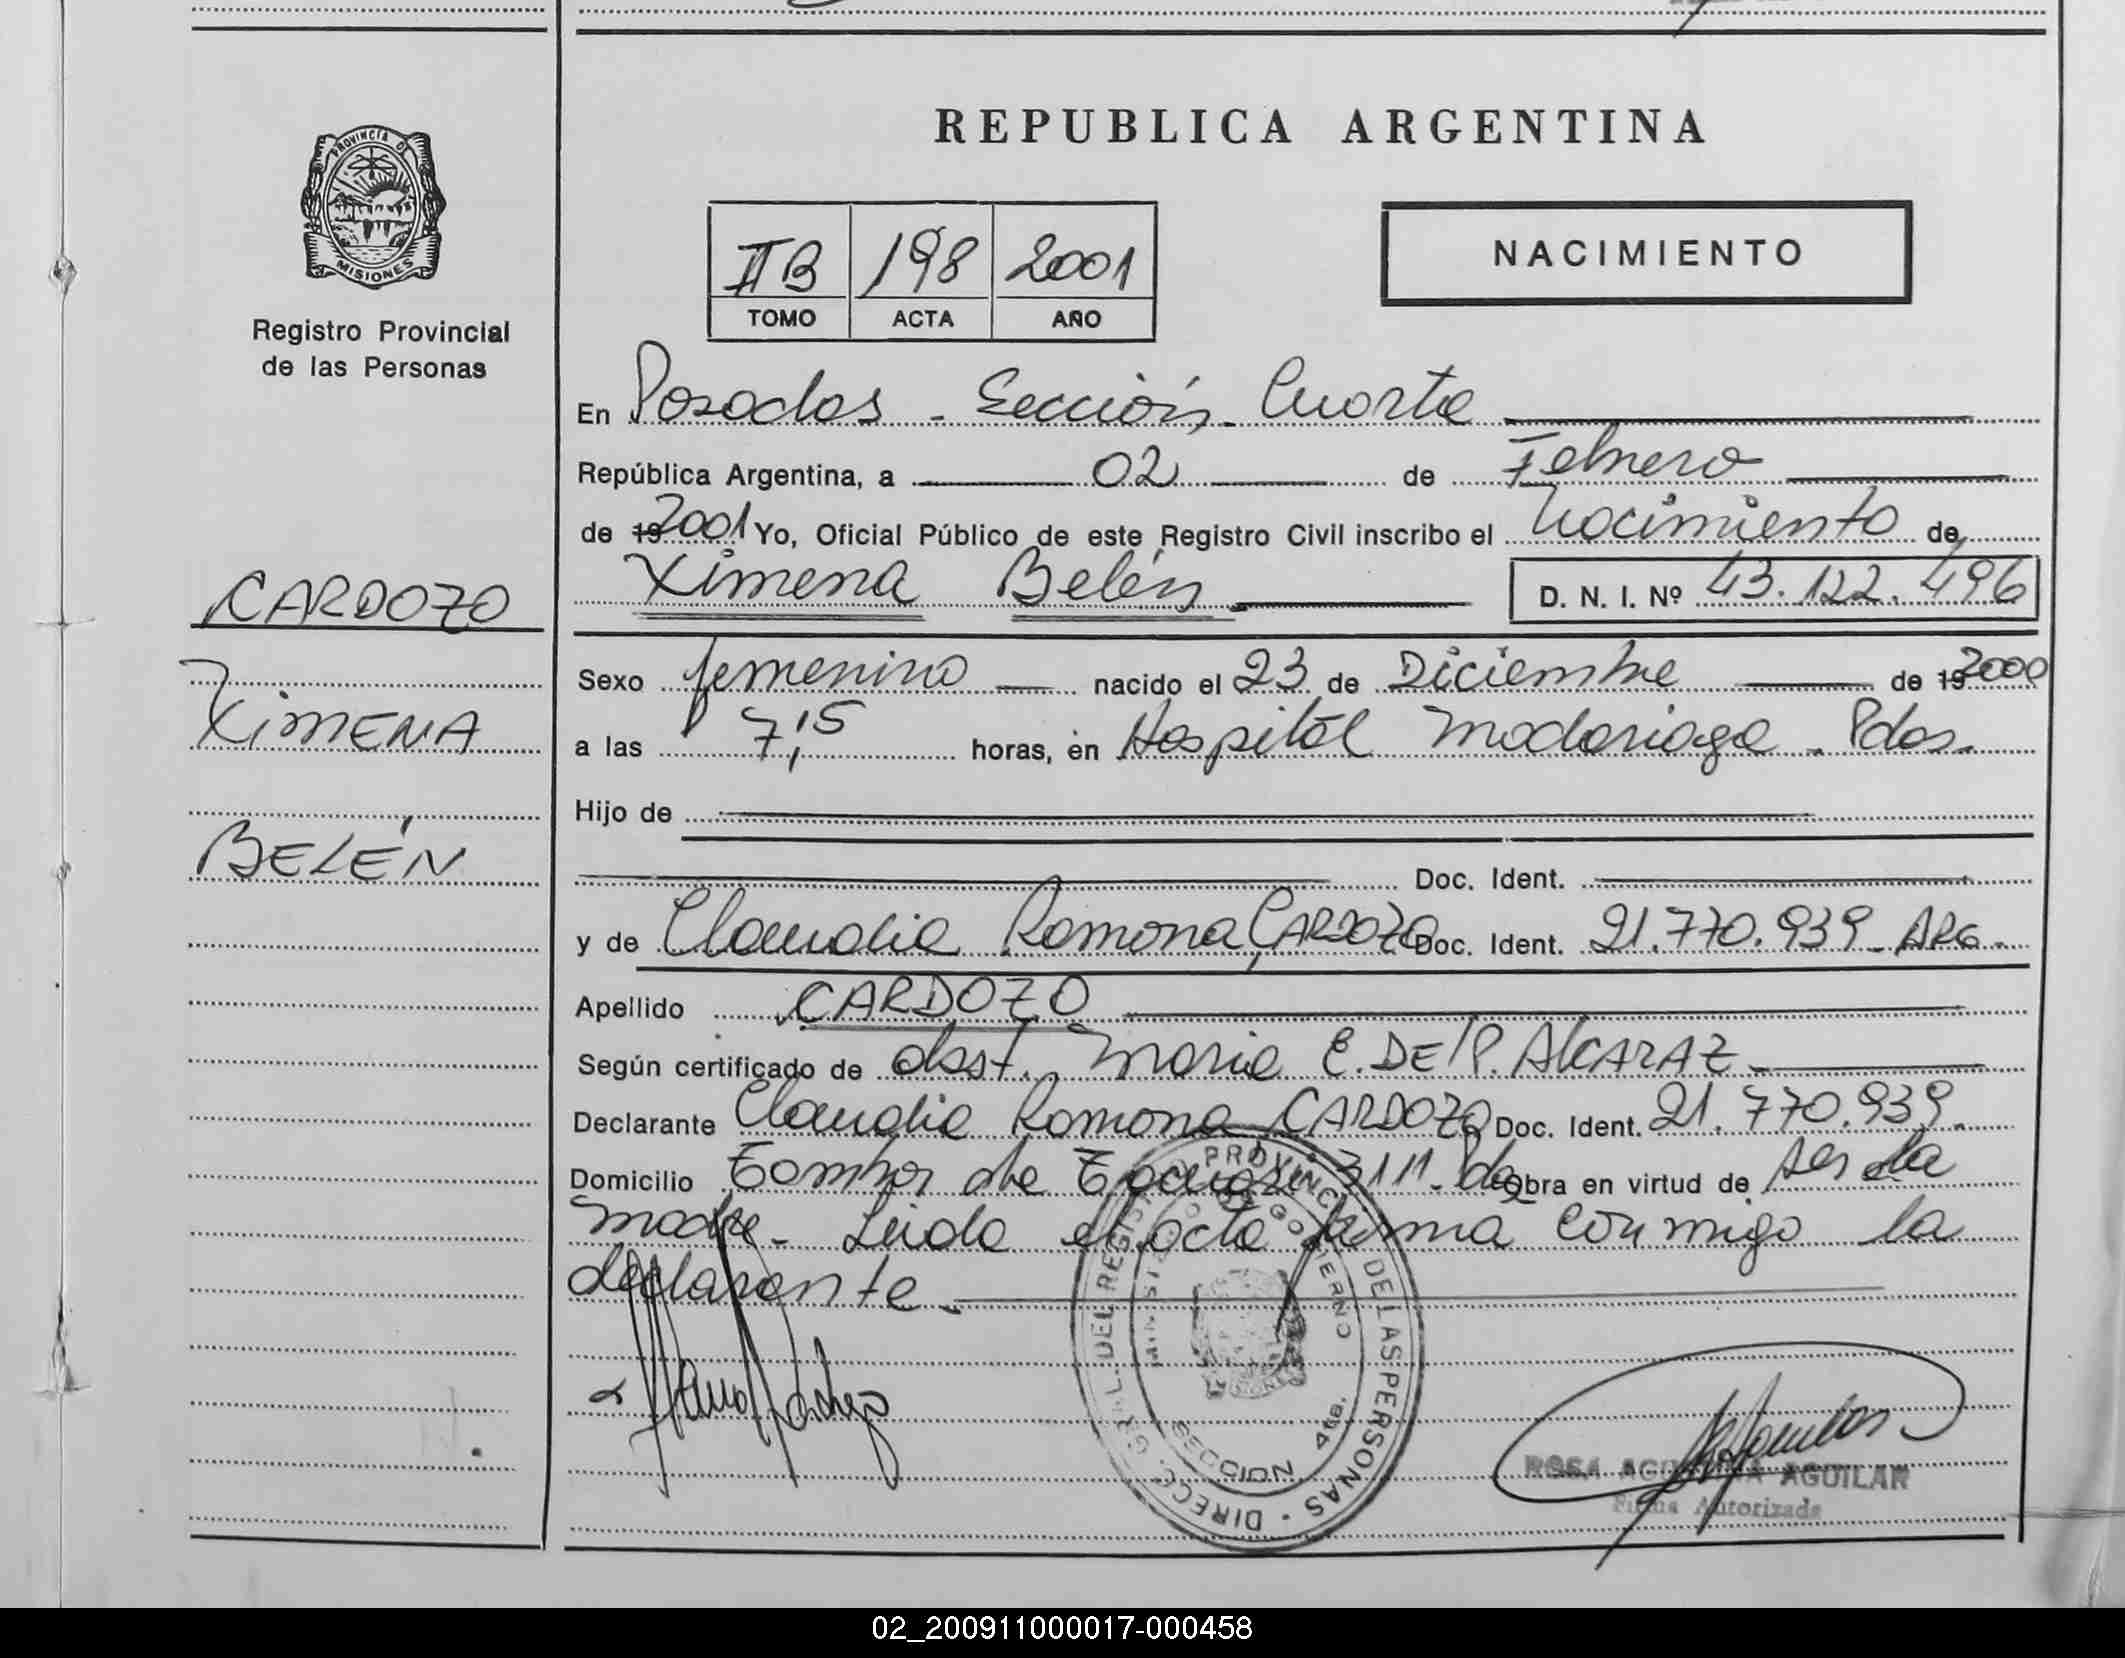 PROVINCIA DE
MISIONES
Registro Provincial
de las Personas
CARDOZO
XiMENA
BELÉN
REPUBLICA ARGENTINA
II B 198 2001
TOMO ACTA AÑO
NACIMIENTO
En Posadas - Sección Cuarta
República Argentina, a 02 de Febrero
de 19 2001 Yo, Oficial Público de este Registro Civil inscribo el Nacimiento de
Ximena Belén D. N. I. Nº 43.122.496
Sexo femenino nacido el 23 de Diciembre de 19 2000
a las 7,15 horas, en Hospital Madariaga - Pdas.
Hijo de
Doc. Ident.
y de Claudia Ramona CARDOZO Doc. Ident. 21.770.939 - ARG.
Apellido CARDOZO
Según certificado de obst. Maria E. DE P. AlCARAZ
Declarante Claudia Ramona CARDOZO Doc. Ident. 21.770.939.
Domicilio Tambor de Tacuari 3111 - Pdas Obra en virtud de ser la
madre - Leida el acta firma conmigo la
declarante -
DIRECC. GRAL. DEL REGISTRO PROVINCIAL DE LAS PERSONAS
MINISTERIO DE GOBIERNO
SECCION 4ta.
MISIONES
ROSA AGUILAR
Firma Autorizada
02_200911000017-000458